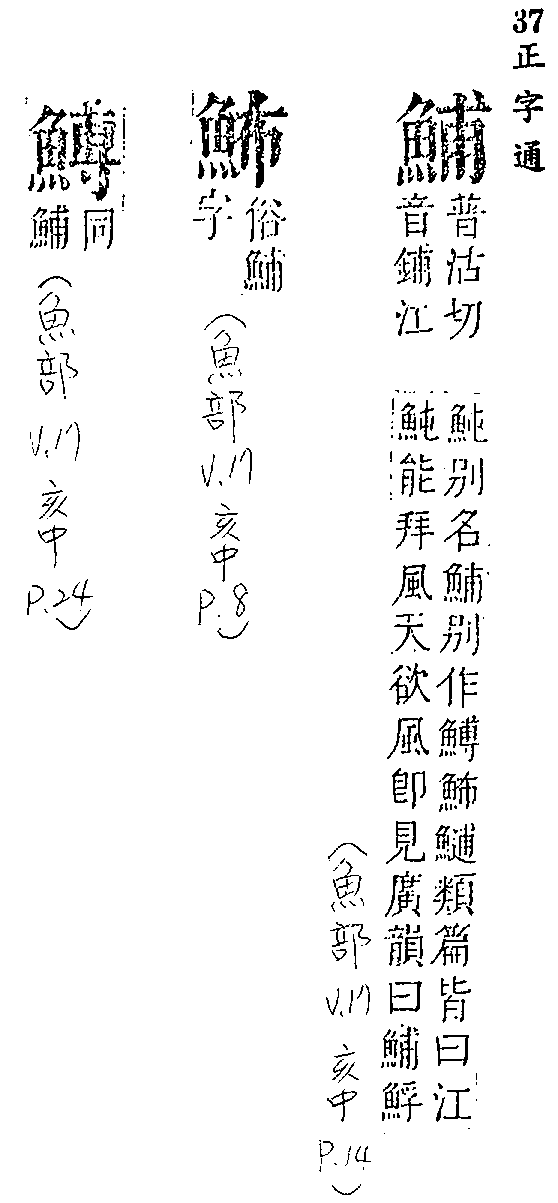 37 正字通
鯆
普沽切
音鋪江
魨別名鯆別作䰽類篇皆曰江
魨能拜風天欲風即見廣韻曰鯆䱐
(魚部 V.17 亥中 P.14)
䰽
俗鯆
字
(魚部 V.17 亥中 P.8)
同
鯆
(魚部 V.17 亥中 P.24)